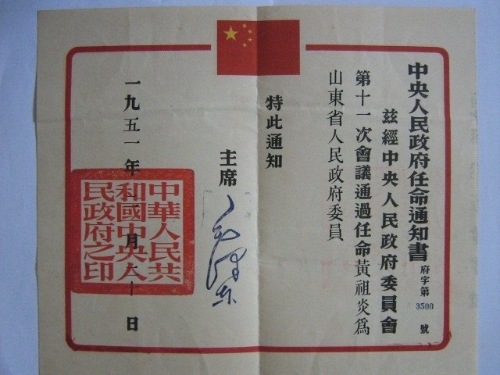 中央人民政府任命通知書
府字第3500號
茲經中央人民政府委員會
第十一次會議通過任命黃祖炎爲
山東省人民政府委員
特此通知
主席
毛澤东
一九五一年 月 日
中華人民共
和國中央人
民政府之印